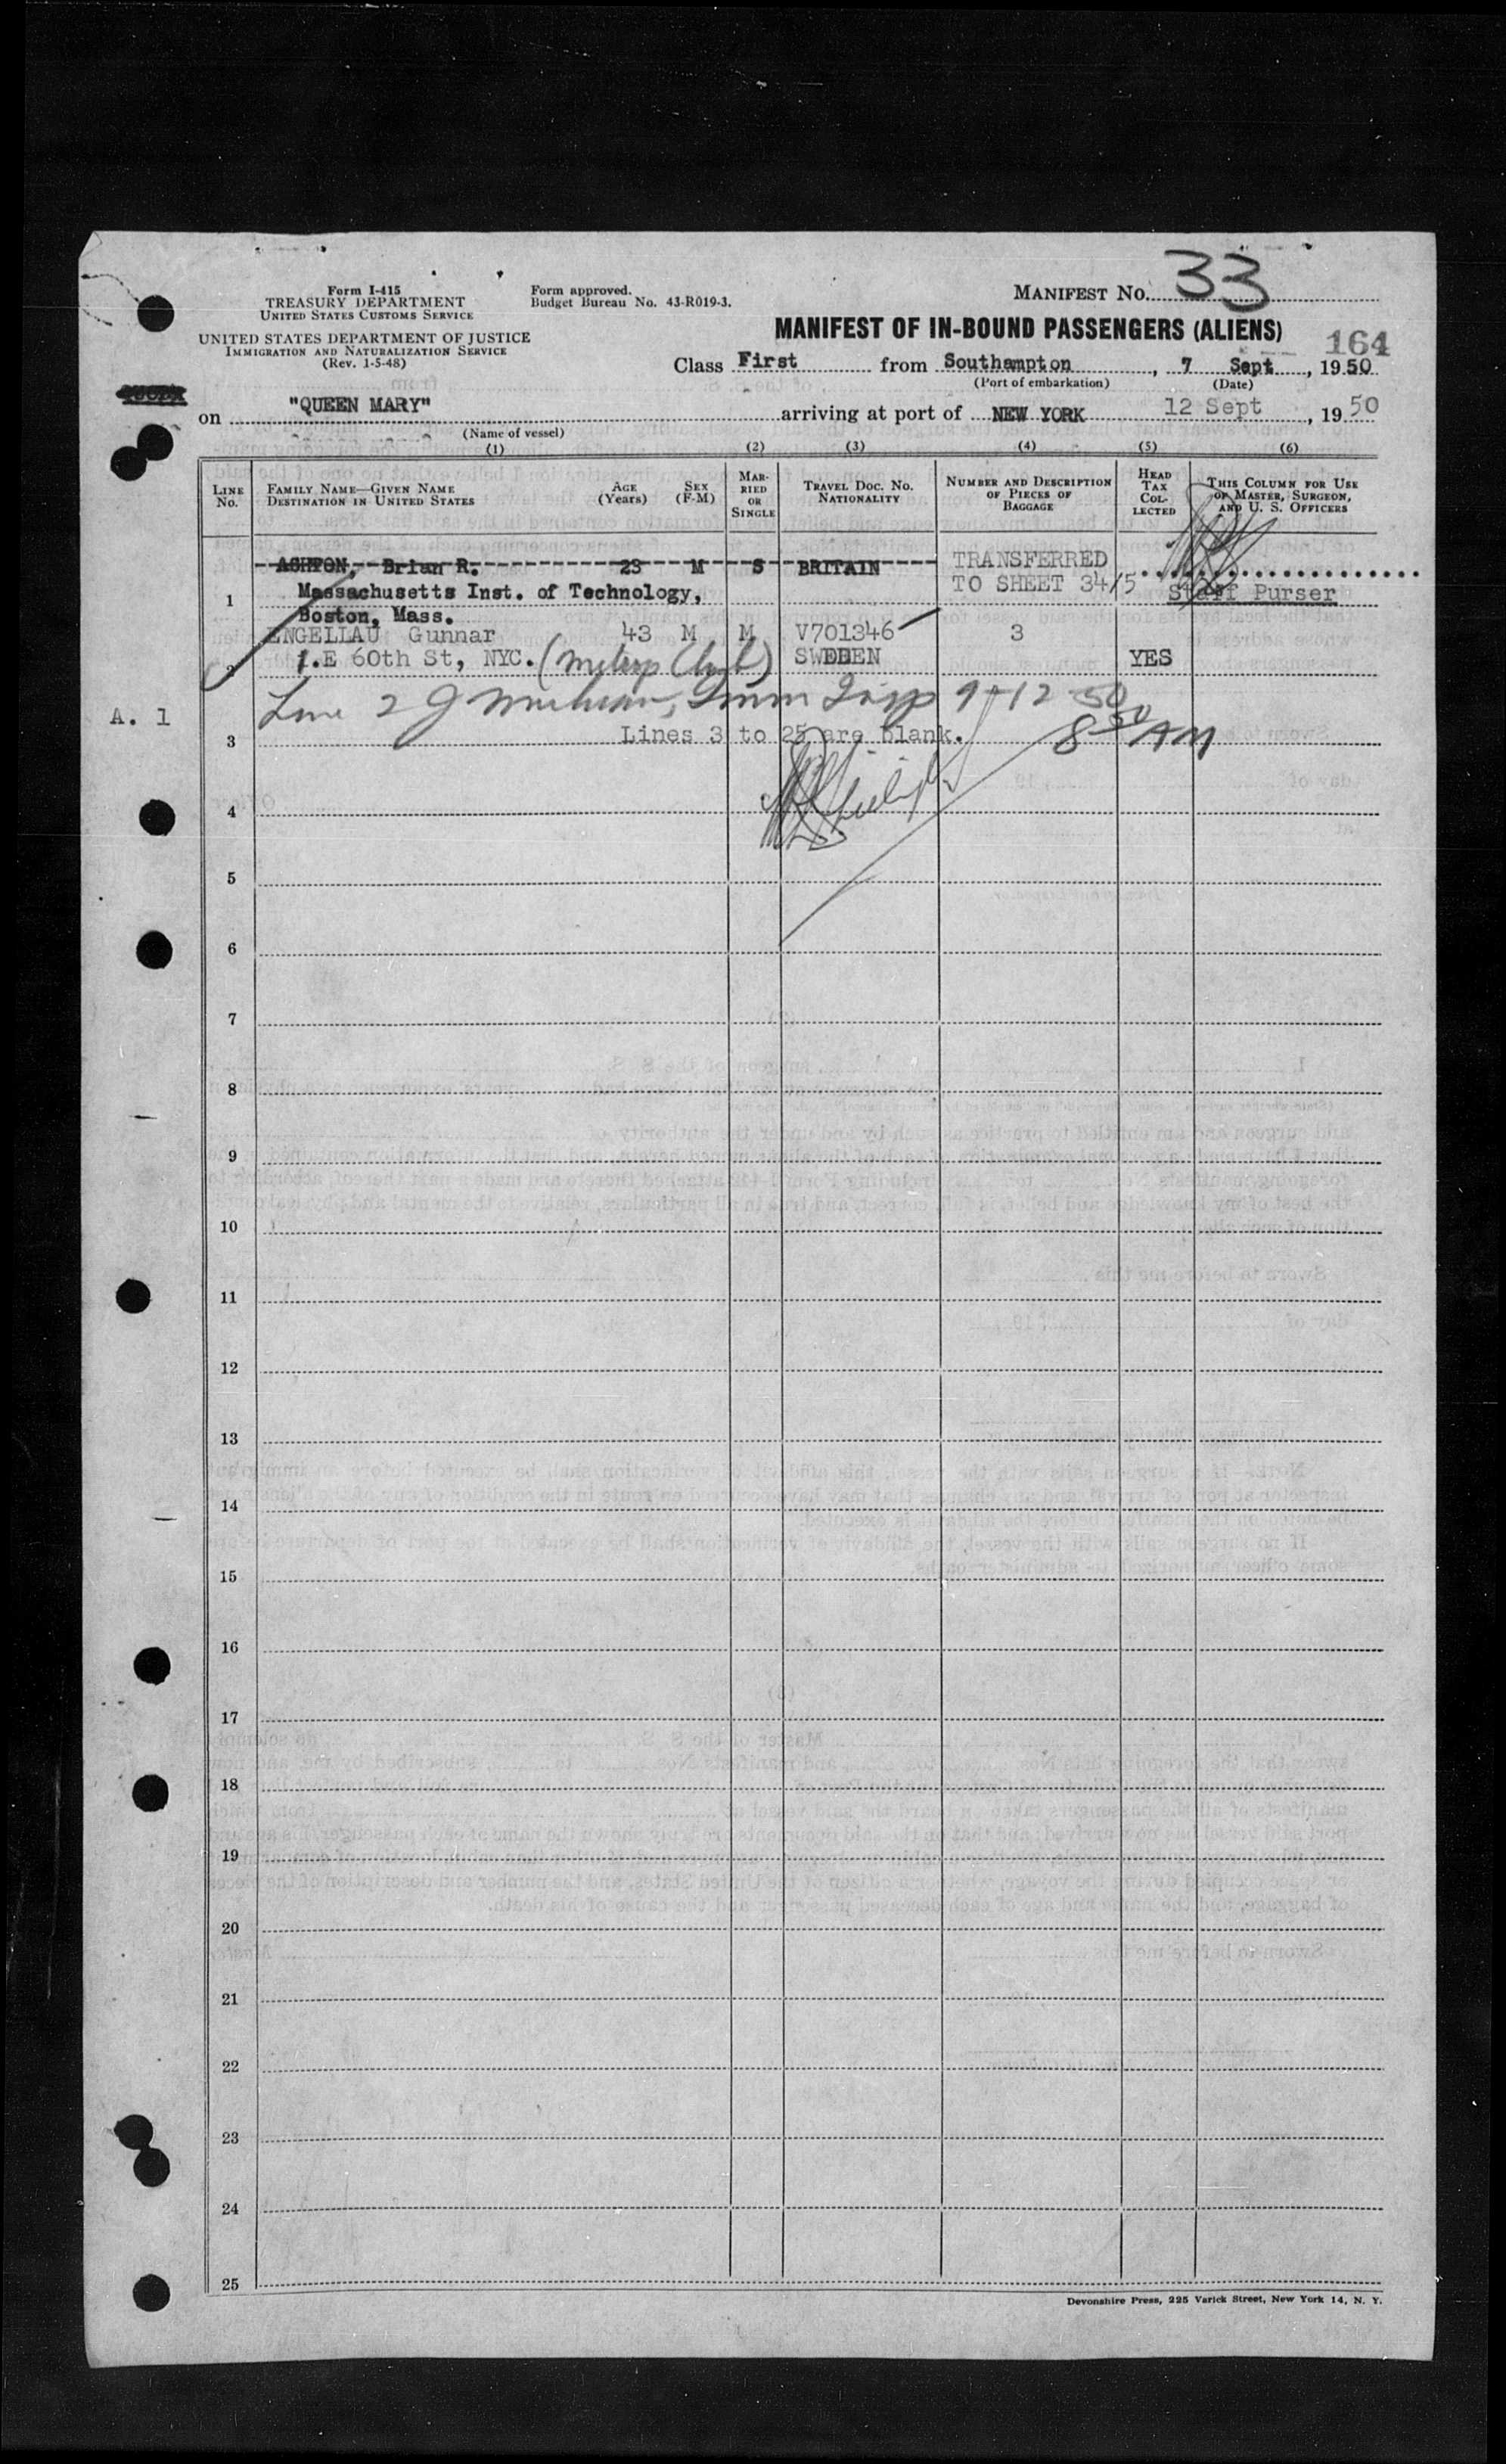 Form I-415
TREASURY DEPARTMENT
UNITED STATES CUSTOMS SERVICE
UNITED STATES DEPARTMENT OF JUSTICE
IMMIGRATION AND NATURALIZATION SERVICE
(Rev. 1-5-48)
Form approved.
Budget Bureau No. 43-R019-3.
MANIFEST NO. 33
MANIFEST OF IN-BOUND PASSENGERS (ALIENS)
164
Class First from Southampton, 7 Sept, 1950
(Port of embarkation) (Date)
on "QUEEN MARY" arriving at port of NEW YORK 12 Sept, 1950
(Name of vessel)
(1) (2) (3) (4) (5) (6)
LINE NO.
FAMILY NAME—GIVEN NAME
DESTINATION IN UNITED STATES
AGE (Years)
SEX (F-M)
MARRIED OR SINGLE
TRAVEL DOC. NO. NATIONALITY
NUMBER AND DESCRIPTION OF PIECES OF BAGGAGE
HEAD TAX COLLECTED
THIS COLUMN FOR USE OF MASTER, SURGEON, AND U. S. OFFICERS
ASHTON, Brian R. 23 M S BRITAIN TRANSFERRED
TO SHEET 34/5
1 Massachusetts Inst. of Technology, Staff Purser
Boston, Mass.
ENGELLAU Gunnar 43 M M V701346 3
2 1.E 60th St, NYC. (Metrop Club) SWEDEN YES
Line 2 9-12-50
A. 1
8 50 AM
3 Lines 3 to 25 are blank.
4
5
6
7
8
9
10
11
12
13
14
15
16
17
18
19
20
21
22
23
24
25
Devonshire Press, 225 Varick Street, New York 14, N. Y.